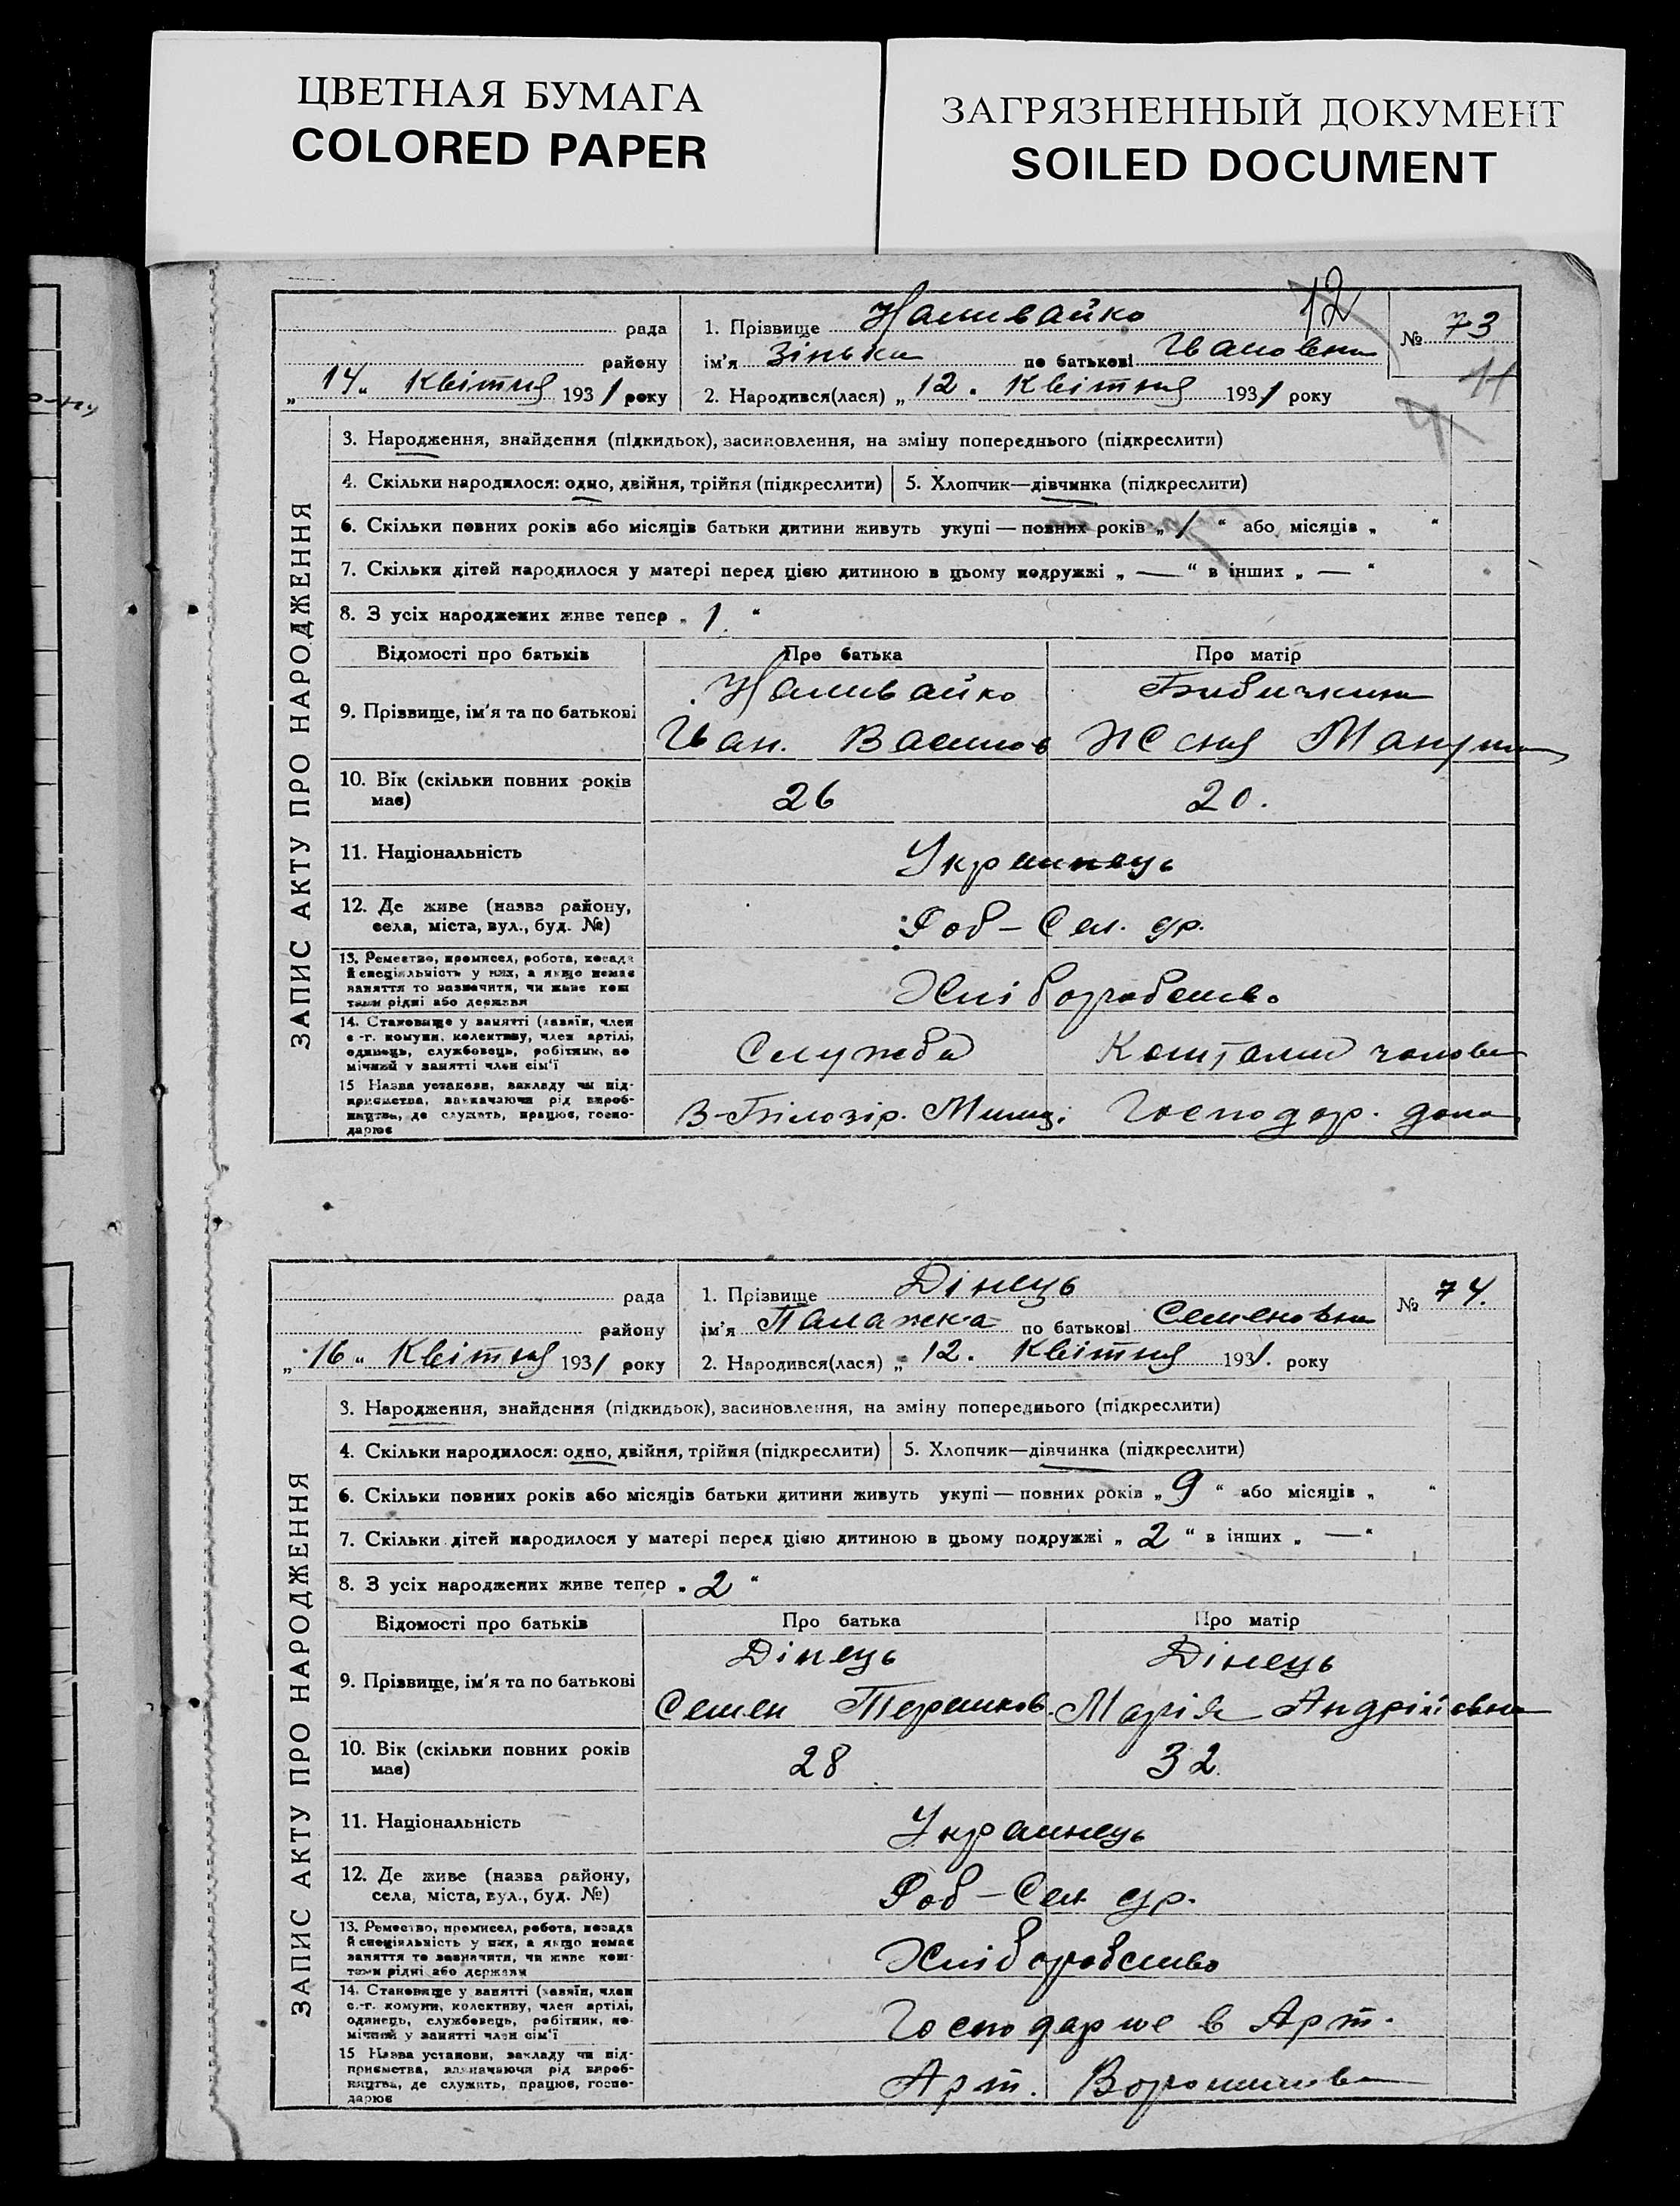 ЦВЕТНАЯ БУМАГА
COLORED PAPER
ЗАГРЯЗНЕННЫЙ ДОКУМЕНТ
SOILED DOCUMENT
12
рада
1. Прізвище Наливайко
№ 73
району
ім'я Зінька по батькові Івановна
11
„14„ Квітня 1931 року
2. Народився(лася) „12. Квітня 1931 року
ЗАПИС АКТУ ПРО НАРОДЖЕННЯ
3. Народження, знайдення (підкидьок), засиновлення, на зміну попереднього (підкреслити)
4. Скільки народилося: одно, двійня, трійня (підкреслити)
5. Хлопчик—дівчинка (підкреслити)
6. Скільки повних років або місяців батьки дитини живуть укупі — повних років „1“ або місяців „ “
7. Скільки дітей народилося у матері перед цією дитиною в цьому подружжі „—“ в інших „—“
8. З усіх народжених живе тепер „1“
Відомості про батьків
Про батька
Про матір
9. Прізвище, ім'я та по батькові
Наливайко
Іван. Васильов
10. Вік (скільки повних років має)
26
20.
11. Національність
Украинець
12. Де живе (назва району,
села, міста, вул., буд. №)
Роб–Сел. др.
13. Ремество, промисел, робота, посада
й спеціяльність у них, а якщо немає
заняття то зазначити, чи живе кош
тами рідні або держави
Хліборобство
14. Становище у занятті (хазяїн, член
с.-г. комуни, колективу, член артілі,
одинець, службовець, робітник, по
мічний у занятті член сім'ї
Служба
Коштами чолові
15 Назва установи, закладу чи під-
приємства, зазначаючи рід вироб-
ництва, де служить, працює, госпо-
дарює
В-Білозір. Міліці
Господар. дома
рада
1. Прізвище Дінець
№ 74.
району
ім'я Палажка по батькові Семеновна
„16„ Квітня 1931 року
2. Народився(лася) „12. Квітня 1931. року
ЗАПИС АКТУ ПРО НАРОДЖЕННЯ
3. Народження, знайдення (підкидьок), засиновлення, на зміну попереднього (підкреслити)
4. Скільки народилося: одно, двійня, трійня (підкреслити)
5. Хлопчик—дівчинка (підкреслити)
6. Скільки повних років або місяців батьки дитини живуть укупі — повних років „9“ або місяців „ “
7. Скільки дітей народилося у матері перед цією дитиною в цьому подружжі „2“ в інших „—“
8. З усіх народжених живе тепер „2“
Відомості про батьків
Про батька
Про матір
9. Прізвище, ім'я та по батькові
Дінець
Семен Терешков.
Дінець
Марія Андрійовна
10. Вік (скільки повних років має)
28
32
11. Національність
Украинець
12. Де живе (назва району,
села, міста, вул., буд. №)
Роб–Сел др.
13. Ремество, промисел, робота, посада
й спеціяльність у них, а якщо немає
заняття то зазначити, чи живе кош-
тами рідні або держави
Хліборобство
14. Становище у занятті (хазяїн, член
с.-г. комуни, колективу, член артілі,
одинець, службовець, робітник, по-
мічний у занятті член сім'ї
Господарює в Арт.
15 Назва установи, закладу чи під-
приємства, зазначаючи рід вироб-
ництва, де служить, працює, госпо-
дарює
Арт. Ворошилова